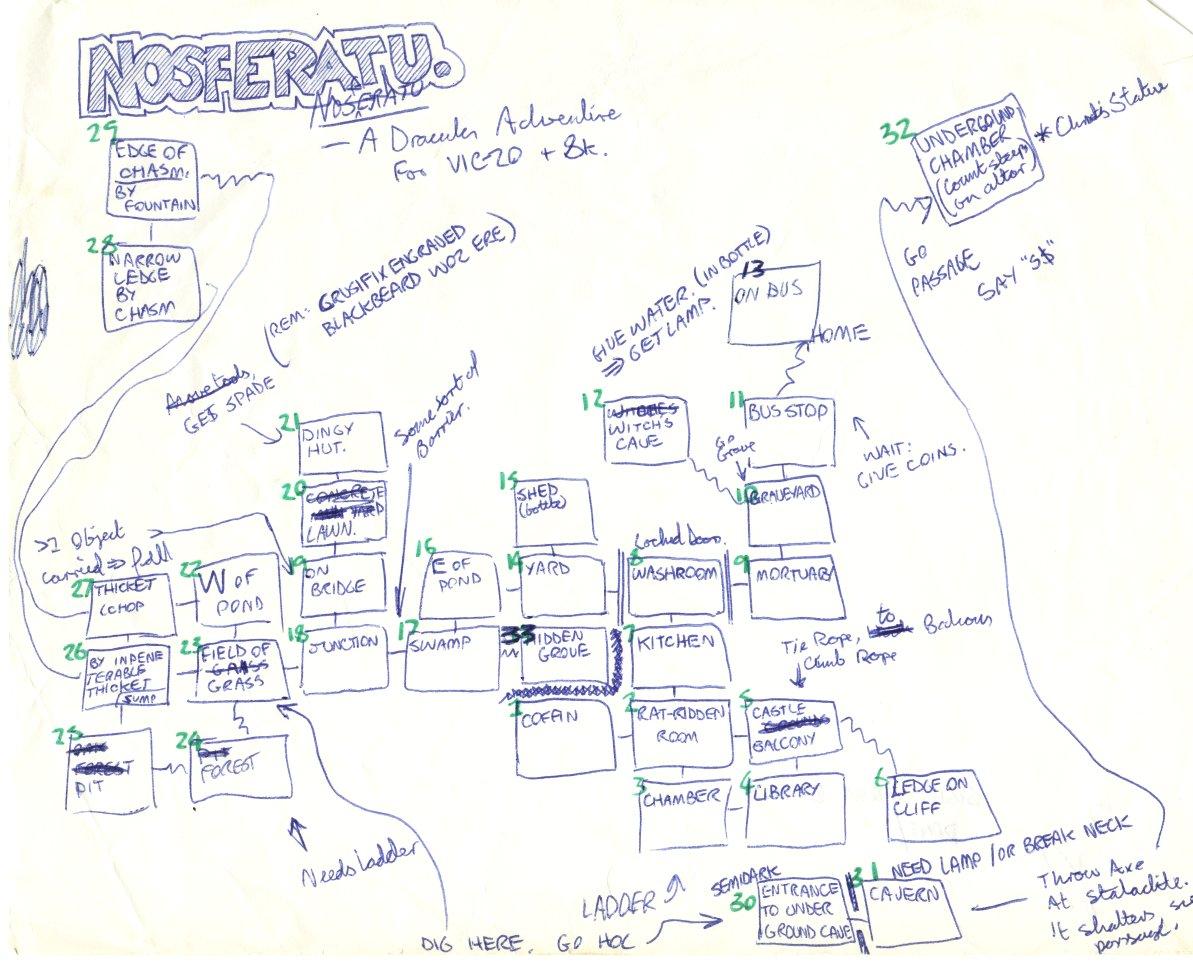 NOSFERATU.
NOSFERATU
— A Dracula Adventure
For VIC-20 + 8k.
29
EDGE OF
CHASM.
BY
FOUNTAIN
28
NARROW
LEDGE
BY
CHASM
32
UNDERGOUND
CHAMBER
(Count sleeps
on altor)
* Christ's Statue
GO
PASSAGE
SAY "S$"
(REM: CRUSIFIX ENGRAVED
BLACKBEARD WOZ ERE)
Move tools,
GET SPADE
GIVE WATER. (IN BOTTLE)
⇒ GET LAMP.
13
ON BUS
HOME
Some sort of
Barrier.
21
DINGY
HUT.
12
WITCH'S
CAVE
11
BUS STOP
WAIT:
GIVE COINS.
Go
Grave
20
CONCRETE
YARD
LAWN.
15
SHED
(bottle)
10
GRAVEYARD
>1 Object
carried ⇒ fall
27
THICKET
(CHOP
22
W OF
POND
19
ON
BRIDGE
16
E OF
POND
14
YARD
Locked Door.
8
WASHROOM
9
MORTUARY
26
BY INPENE
TERABLE
THICKET
JUMP
23
FIELD OF
GRASS
GRASS
18
JUNCTION
17
SWAMP
33
HIDDEN
GROVE
7
KITCHEN
Tie Rope, to Balcony
Climb Rope
25
FOREST
PIT
24
PIT
FOREST
1
COFFIN
2
RAT-RIDDEN
ROOM
5
CASTLE
GROUNDS
BALCONY
3
CHAMBER
4
LIBRARY
6
LEDGE ON
CLIFF
Needs ladder
LADDER
DIG HERE. GO HOL
SEMIDARK
30
ENTRANCE
TO UNDER
GROUND CAVE
31
NEED LAMP / OR BREAK NECK
CAVERN
Throw Axe
At Stalactite.
It shatters